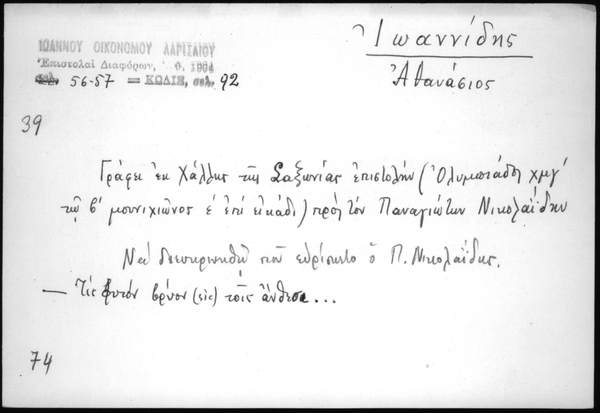 ΙΩΑΝΝΟΥ ΟΙΚΟΝΟΜΟΥ ΛΑΡΙΣΑΙΟΥ
Ἐπιστολαὶ Διαφόρων, 1964
σελ. 56-57 — ΚΩΔΙΞ, σελ. 92
Ἰωαννίδης
Ἀθανάσιος
39
Γράφει ἐκ Χάλλης τῆς Σαξωνίας ἐπιστολήν (Ὀλυμπιάδι χμγ΄
τῷ β΄ μουνιχιῶνος έ ἐπί εἰκάδι) πρός τόν Παναγιώτην Νικολαΐδην
Νά διευκρινηθῇ ποῦ εὑρίσκετο ὁ Π. Νικολαΐδης.
— Τίς φυτόν βρύον (sic) τοῖς ἄνθεσι...
74